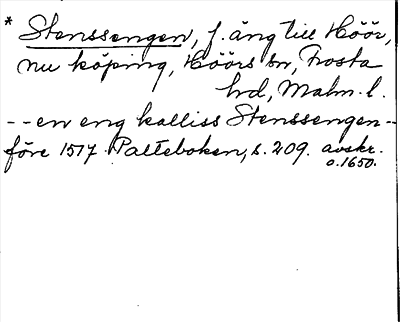 * Stenssengen, f. äng till Höör,
nu köping, Höörs sn, Frosta
hrd, Malm. l.
-- en eng kalliss Stenssengen --
före 1517. Palteboken, s. 209. avskr.
o. 1650.